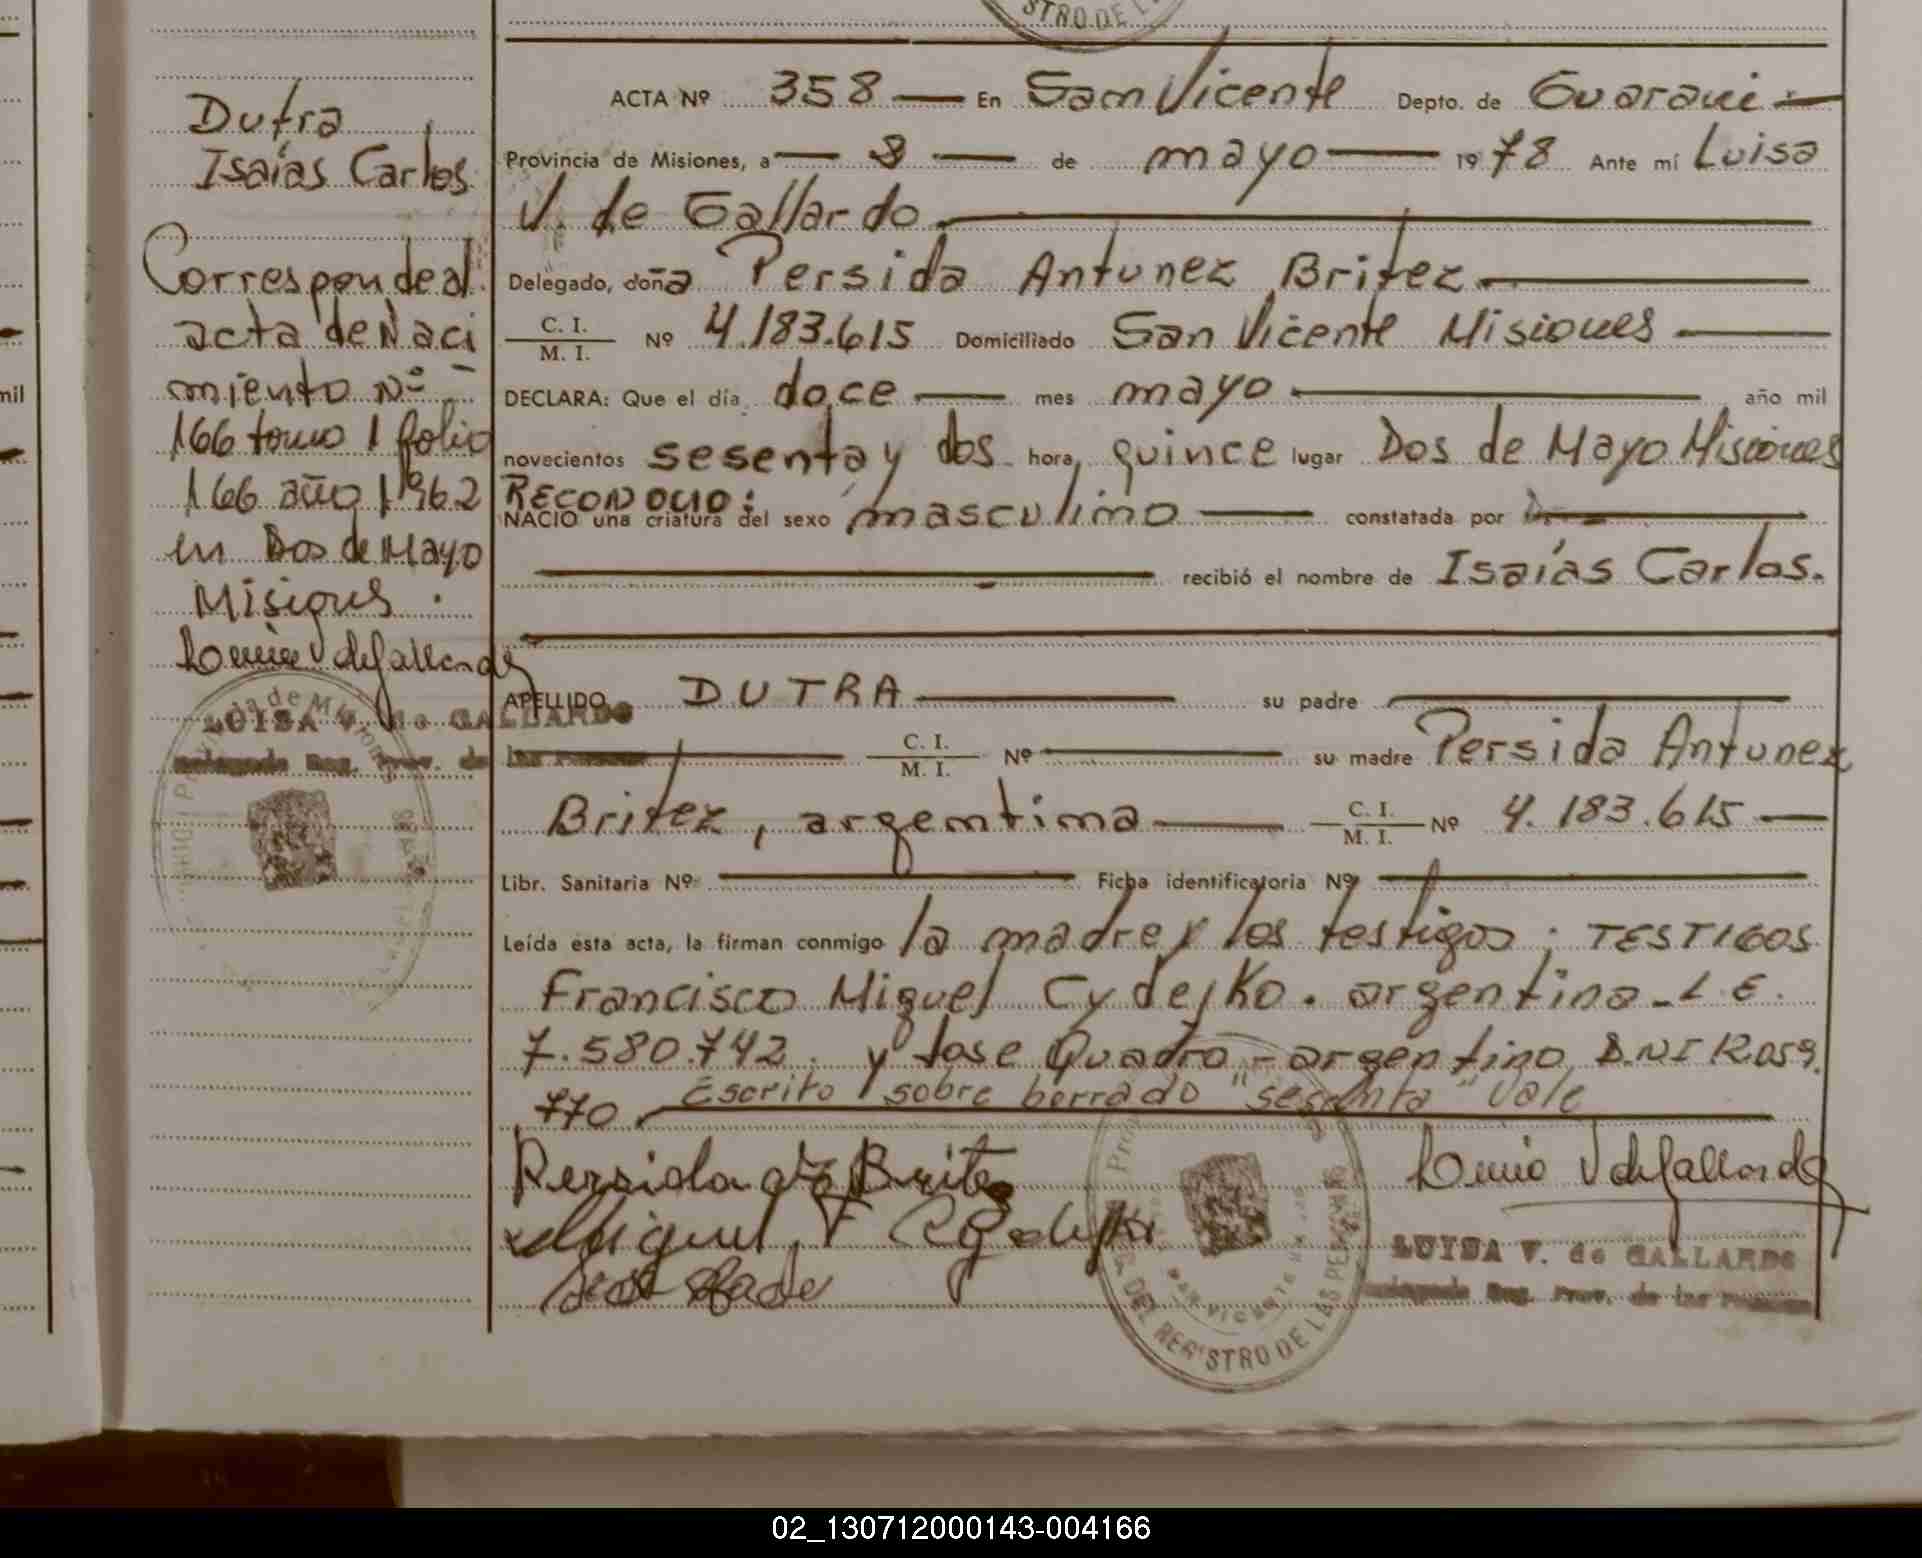 STRO DE L
Dutra
Isaías Carlos
Corresponde al
acta de Naci
miento Nº
166 tomo 1 folio
166 año 1962
en Dos de Mayo
Misiones.
LUISA V. de GALLARDO
Delegada Reg. Prov. de las Personas
mil
ACTA Nº 358 — En San Vicente Depto. de Guaraní —
Provincia de Misiones, a — 8 — de mayo — 1978 Ante mí Luisa
V. de Gallardo
Delegado, doña Persida Antunez Britez
C. I. / M. I. Nº 4.183.615 Domiciliado San Vicente Misiones
DECLARA: Que el día doce — mes mayo — año mil
novecientos sesenta y dos hora quince lugar Dos de Mayo Misiones
RECONOCIO:
NACIO una criatura del sexo masculino — constatada por
recibió el nombre de Isaías Carlos.
APELLIDO DUTRA — su padre
C. I. / M. I. Nº — su madre Persida Antunez
Britez, argentina — C. I. / M. I. Nº 4.183.615 —
Libr. Sanitaria Nº — Ficha identificatoria Nº
Leída esta acta, la firman conmigo la madre y los testigos: TESTIGOS
Francisco Miguel Cydejko. argentino - L. E.
7.580.742. y Jose Quadro - argentino D.N.I 12.059.
770. Escrito sobre borrado "sesenta" vale
Persida Britez
Miguel F
LUISA V. de GALLARDO
Delegada Reg. Prov. de las Personas
DEL REGISTRO DE LAS PERSONAS
SAN VICENTE
02_130712000143-004166